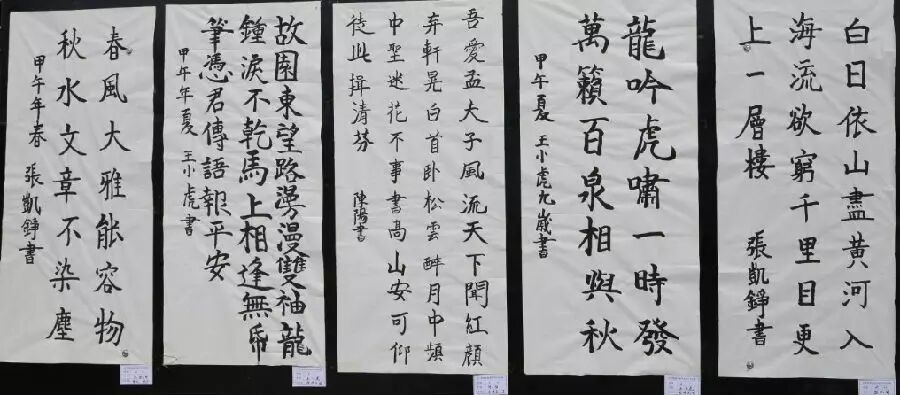 白日依山盡黃河入
海流欲窮千里目更
上一層樓 張凱錚書
龍吟虎嘯一時發
萬籟百泉相與秋
甲午夏 王小虎九歲書
吾愛孟夫子風流天下聞紅顏
弃軒晃白首卧松雲醉月中頻
中聖迷花不事書高山安可仰
徒此揖清芬 陳陽書
故園東望路漫漫雙袖龍
鍾淚不乾馬上相逢無帋
筆憑君傳語報平安
甲午年夏 王小虎書
春風大雅能容物
秋水文章不染塵
甲午年春 張凱錚書